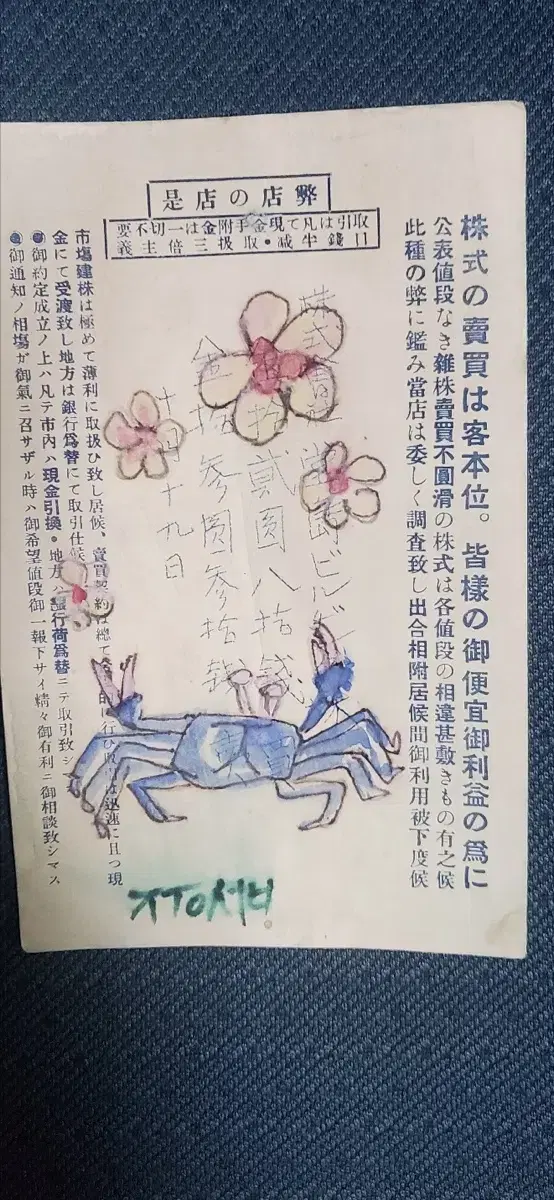 株式の賣買は客本位。皆様の御便宜御利益の爲に
公表値段なき雜株賣買不圓滑の株式は各値段の相違甚敷きもの有之候
此種の弊に鑑み當店は委しく調査致し出合相附居候間御利用被下度候
是店の店弊
要不切一は金附手金現て凡は引取
義主倍三扱取・减半錢口
株式會社
拾貳圓八拾錢
金拾參圓參拾錢
十九日
賣
買
市塲建株は極めて薄利に取扱ひ致し居候、賣買契約は總て
に行ひ
は迅速に且つ現
金にて受渡致し地方は銀行爲替にて取引仕候
御約定成立ノ上ハ凡テ市内ハ現金引換・地方ハ銀行荷爲替ニテ取引致シマ
御通知ノ相塲ガ御氣ニ召サザル時ハ御希望値段御一報下サイ精々御有利ニ御相談致シマス